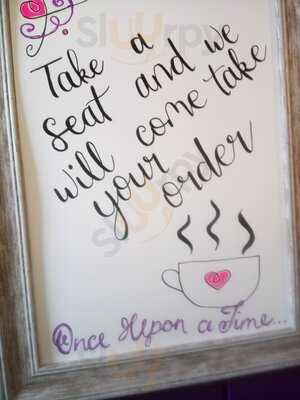 Take a
seat and we
will come take
your order
Once Upon a Time...
Sluurpy